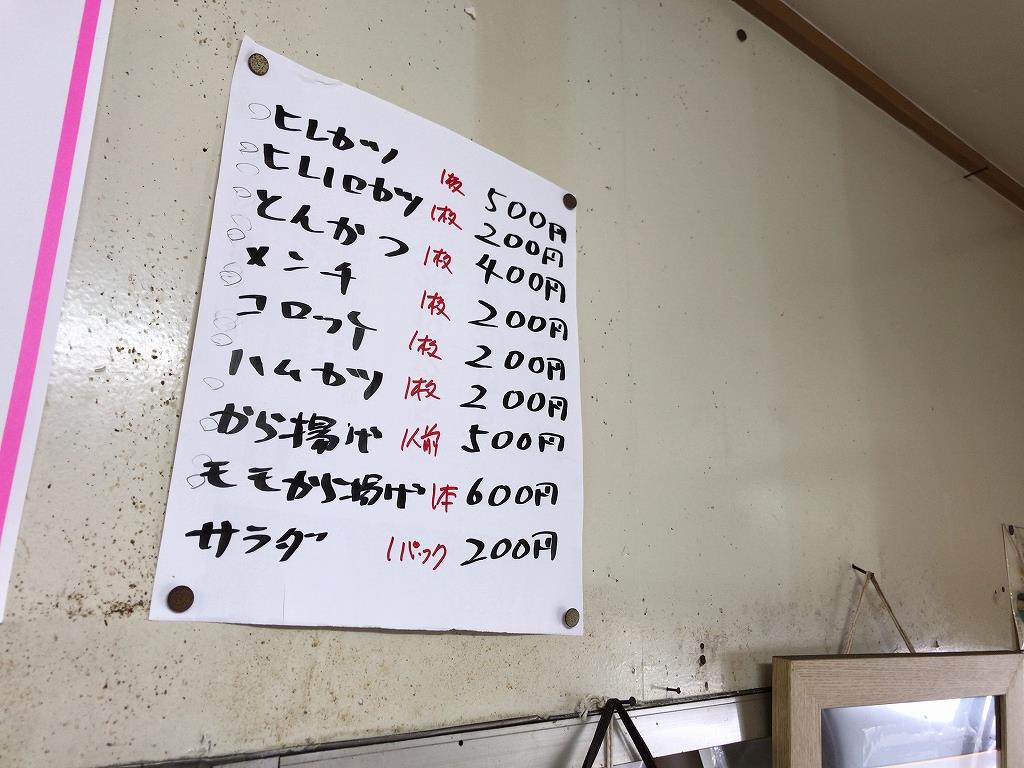 ヒレカツ 1枚 500円
ヒレ一口カツ 1枚 200円
とんかつ 1枚 400円
メンチ 1枚 200円
コロッケ 1枚 200円
ハムカツ 1枚 200円
から揚げ 1人前 500円
モモから揚げ 1本 600円
サラダ 1パック 200円